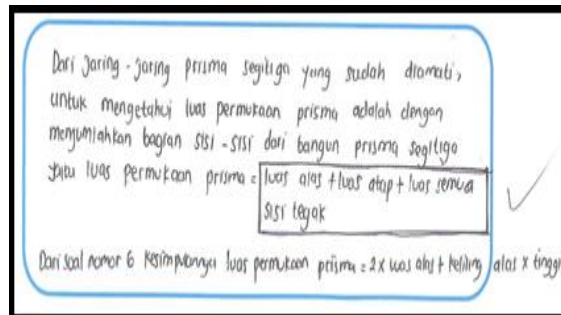 Dari Jaring-jaring prisma segitiga yang sudah diamati,
untuk mengetahui luas permukaan prisma adalah dengan
menjumlahkan bagian sisi-sisi dari bangun prisma segitiga
yaitu luas permukaan prisma = luas alas + luas atap + luas semua
sisi tegak
Dari soal nomor 6 kesimpulannya luas permukaan prisma = 2 x luas alas + keliling alas x tinggi